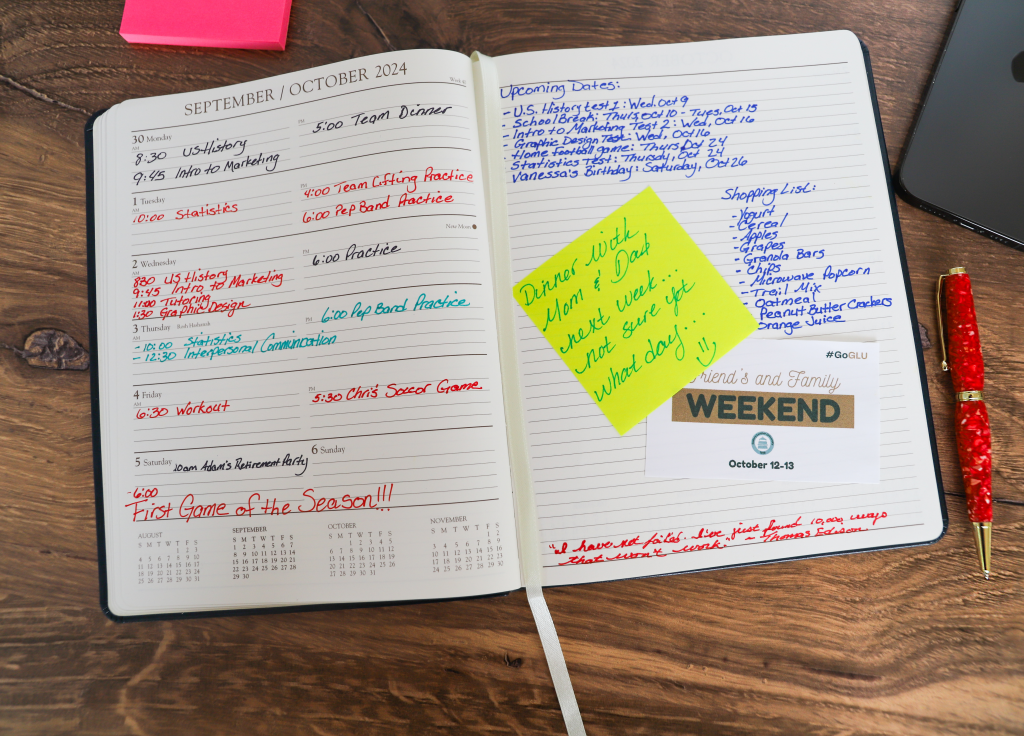 SEPTEMBER / OCTOBER 2024
30 Monday
AM
8:30 US History
9:45 Intro to Marketing
PM
5:00 Team Dinner
1 Tuesday
AM
10:00 Statistics
PM
4:00 Team Lifting Practice
6:00 Pep Band Practice
2 Wednesday
AM
8:30 US History
9:45 Intro to Marketing
11:00 Tutoring
1:30 Graphic Design
New Moon
PM
6:00 Practice
3 Thursday Rosh Hashanah
-10:00 Statistics
-12:30 Interpersonal Communication
PM
6:00 Pep Band Practice
4 Friday
AM
6:30 Workout
PM
5:30 Chris' Soccer Game
5 Saturday 10am Adam's Retirement Party
6 Sunday
-6:00
First Game of the Season!!!
AUGUST
S M T W T F S
1 2 3
4 5 6 7 8 9 10
11 12 13 14 15 16 17
18 19 20 21 22 23 24
25 26 27 28 29 30 31
SEPTEMBER
S M T W T F S
1 2 3 4 5 6 7
8 9 10 11 12 13 14
15 16 17 18 19 20 21
22 23 24 25 26 27 28
29 30
OCTOBER
S M T W T F S
1 2 3 4 5
6 7 8 9 10 11 12
13 14 15 16 17 18 19
20 21 22 23 24 25 26
27 28 29 30 31
NOVEMBER
S M T W T F S
1 2
3 4 5 6 7 8 9
10 11 12 13 14 15 16
17 18 19 20 21 22 23
24 25 26 27 28 29 30
Upcoming Dates:
- U.S. History test 1: Wed, Oct 9
- School Break: Thurs, Oct 10 - Tues, Oct 15
- Intro to Marketing Test 2: Wed, Oct 16
- Graphic Design Test: Wed, Oct 16
- Home football game: Thurs Oct 24
- Statistics Test: Thursday, Oct 24
Vanessa's Birthday: Saturday, Oct 26
Shopping List:
- Yogurt
- Cereal
- Apples
- Grapes
- Granola Bars
- Chips
- Microwave Popcorn
- Trail Mix
Oatmeal
Peanut Butter Crackers
Orange Juice
Dinner With
Mom & Dad
next week...
not sure yet
what day...
#GoGLU
Friend's and Family
WEEKEND
October 12-13
"I have not failed. I've just found 10,000 ways
that won't work." ~ Thomas Edison